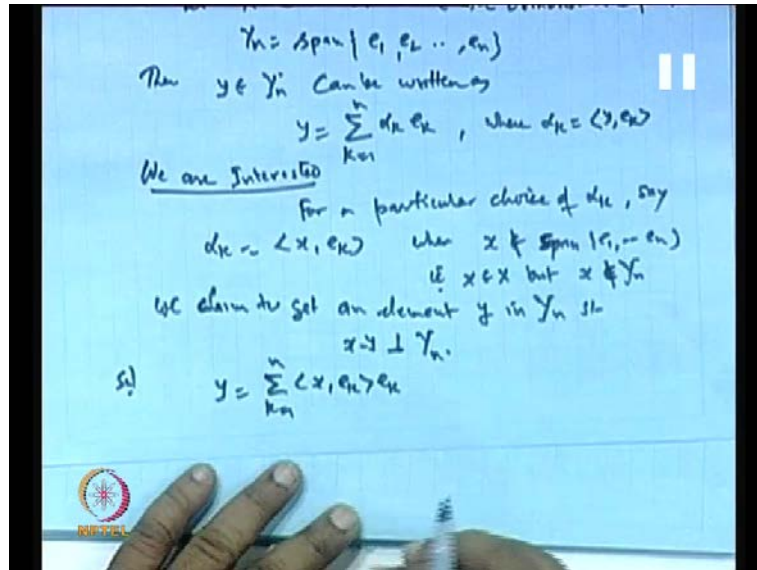 Yn = span { e1, e2 .., en}
Then y ∈ Yn Can be written as
y = Σ_{k=1}^{n} αk ek , where αk = <y, ek>
We are Interested
For a particular choice of αk, say
αk = <x, ek> when x ∉ span (e1, .. en)
ie x ∈ X but x ∉ Yn
We claim to get an element y in Yn st
x-y ⊥ Yn.
Sol y = Σ_{k=1}^{n} <x, ek> ek
NPTEL